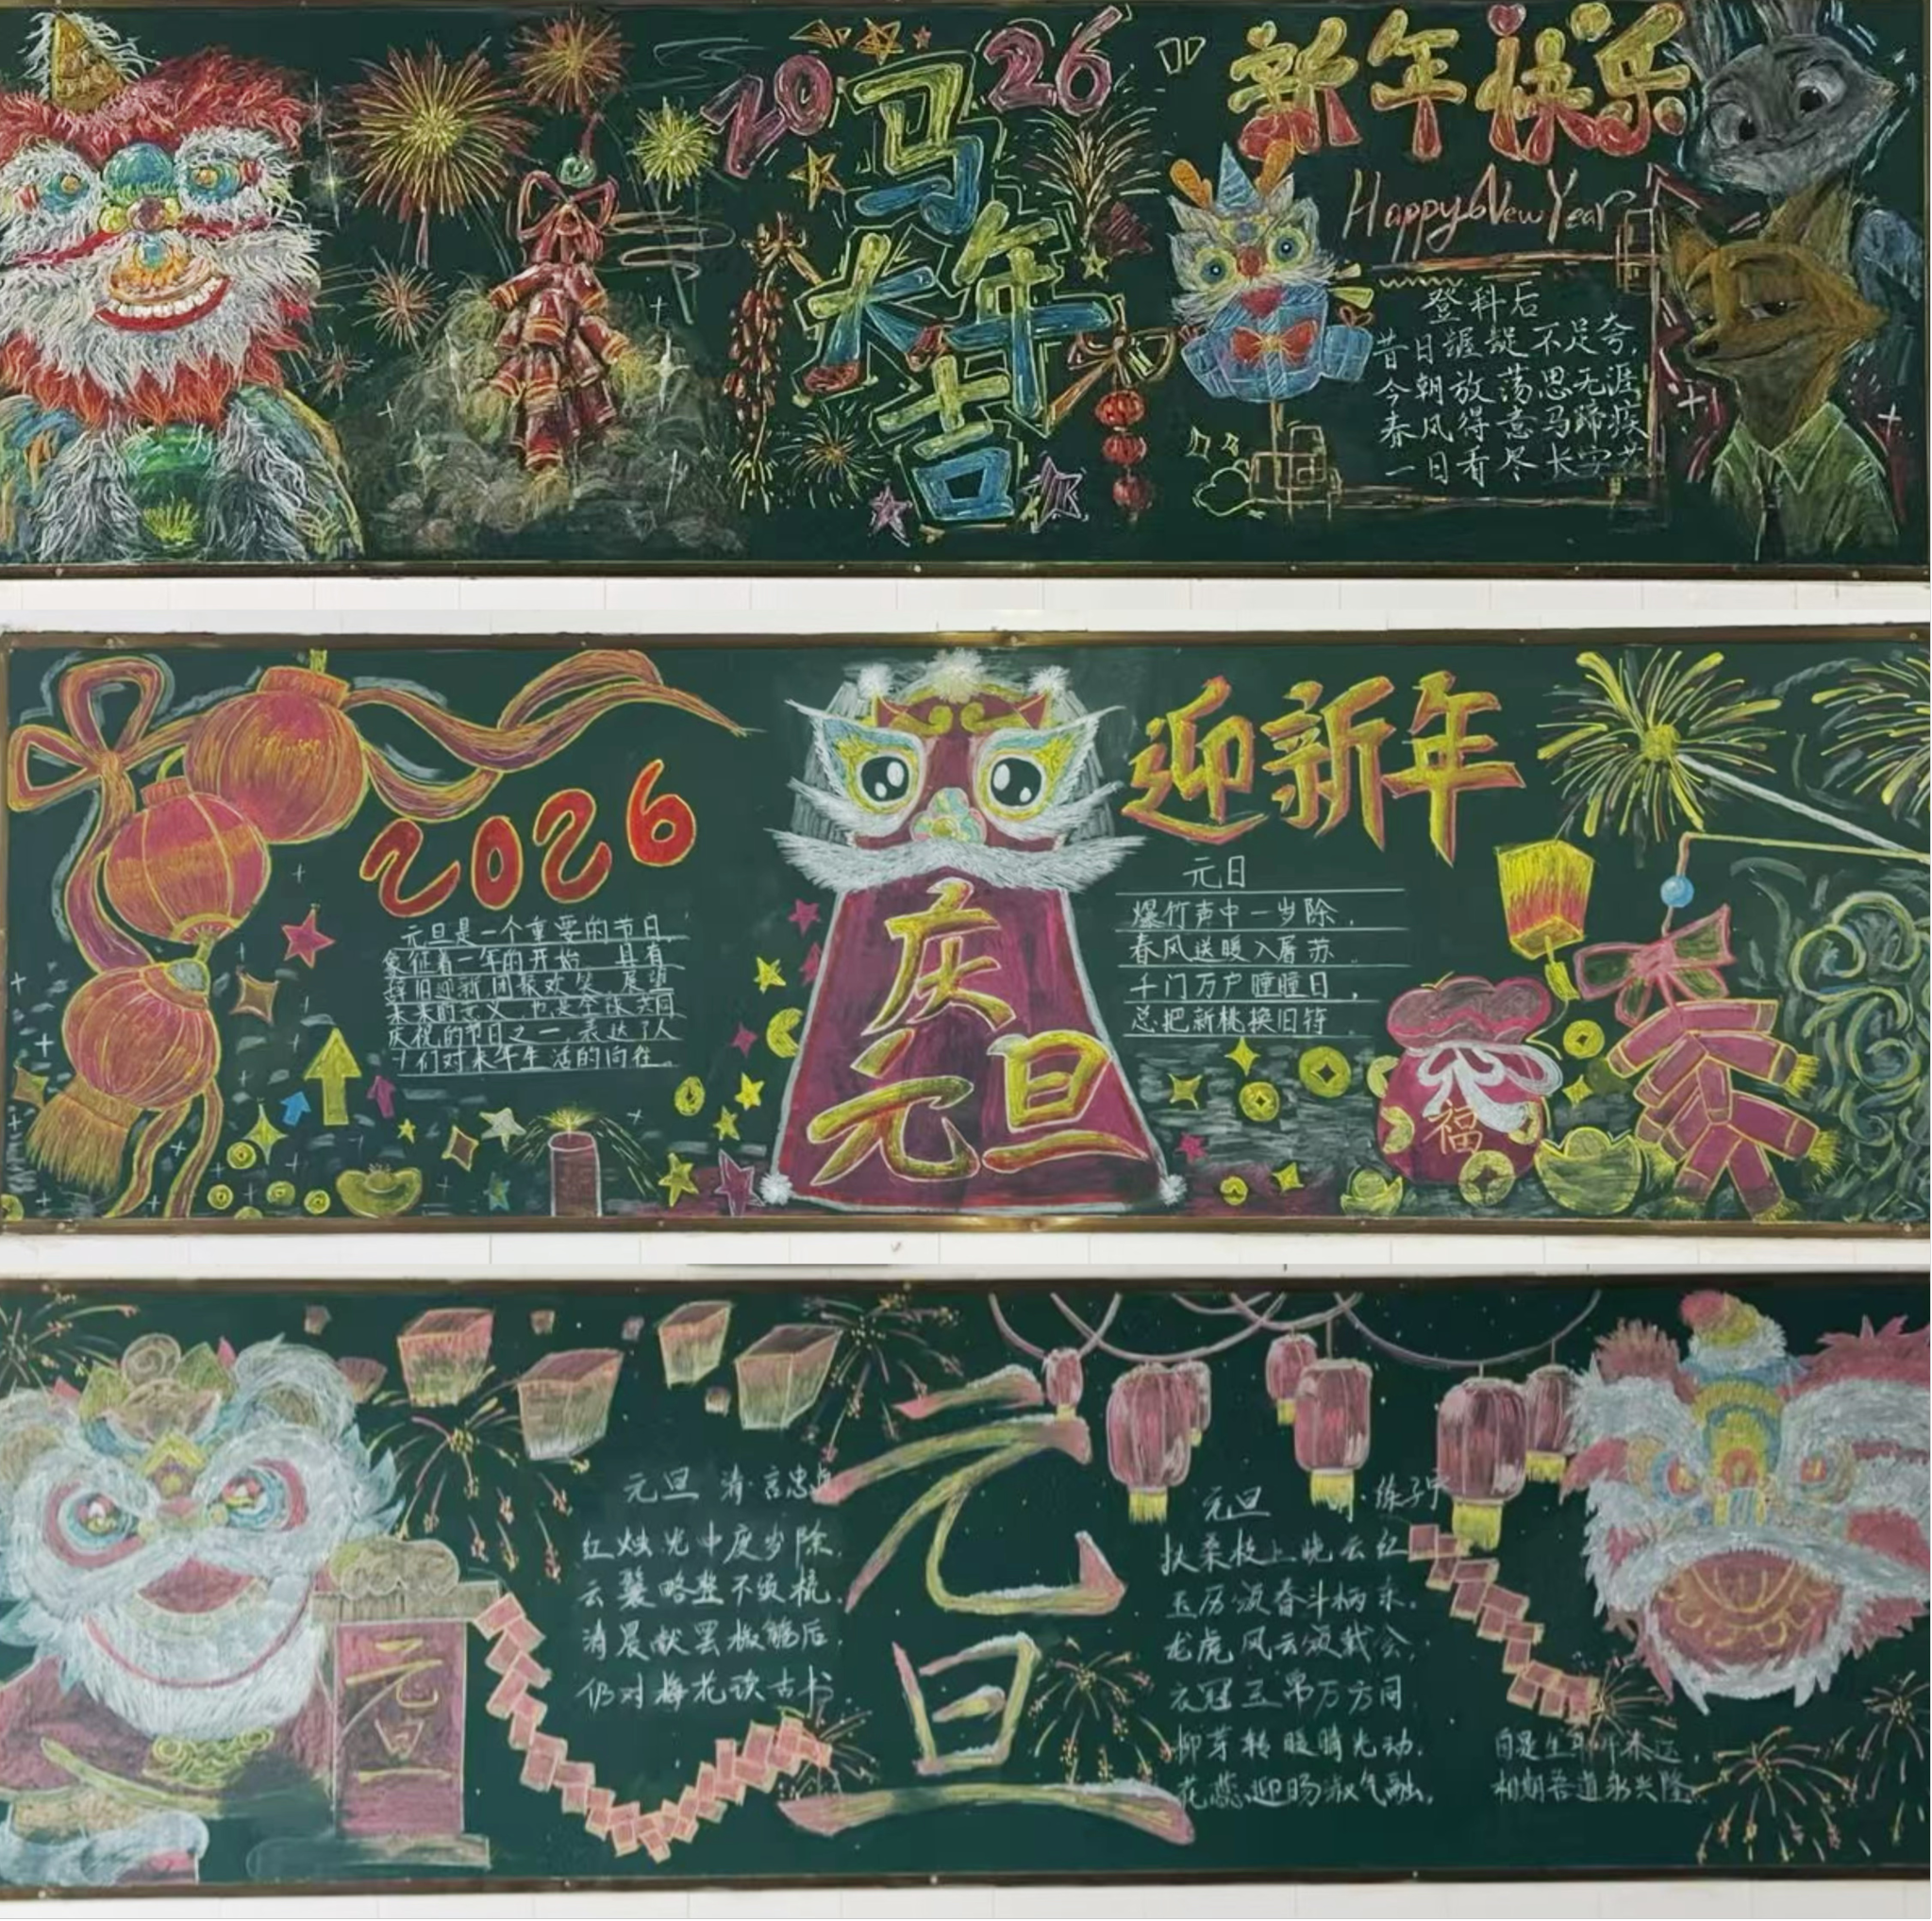 2026
马
大年
吉
新年快乐
Happy New Year
登科后
昔日龌龊不足夸,
今朝放荡思无涯
春风得意马蹄疾
一日看尽长安花
2026
元旦是一个重要的节日,
象征着一年的开始,具有
辞旧迎新,团聚欢笑,展望
未来的意义,也是全球共同
庆祝的节日之一,表达了人
们对来年生活的向往。
庆
元旦
迎新年
元日
爆竹声中一岁除,
春风送暖入屠苏.
千门万户瞳瞳日,
总把新桃换旧符.
福
元旦
元旦 清·言忠贞
红烛光中度岁除.
云鬟略整不须梳.
清晨献罢椒觞后.
仍对梅花读古书.
元
旦
元旦 ·练子宁
扶桑枝上晓云红
玉历颁春斗柄东.
龙虎风云须载会,
衣冠玉帛万方同
柳芽转暖晴光动.
花蕊迎旸淑气融.
自是生
相期吾道永兴隆